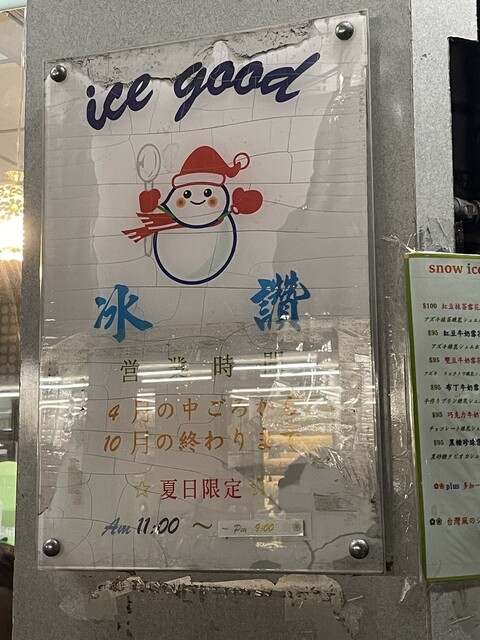 ice good
冰 讚
営業時間
4月の中ごろから
10月の終わりまで
☆ 夏日限定 ☆
Am 11:00 ~ ~ Pm 9:00
snow ice
$100 紅豆抹茶雪花
$95 紅豆牛奶雪花
$95 雙豆牛奶雪
$95 布丁牛奶雪
$95 巧克力牛奶
$95 黑糖珍珠雪
plus 多加一
台灣風の